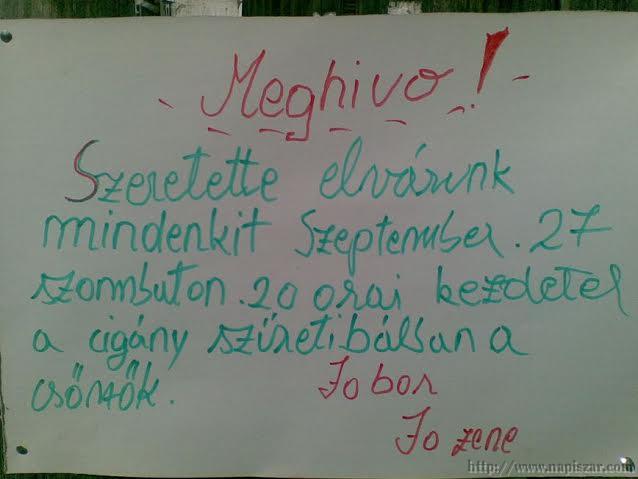 Meghivo!
Szeretette elvárunk
mindenkit Szeptember. 27
szombuton. 20 orai kezdetel
a cigány szüretibálban a
csőrsők.
Jo bor
Jo zene
http://www.napiszar.com